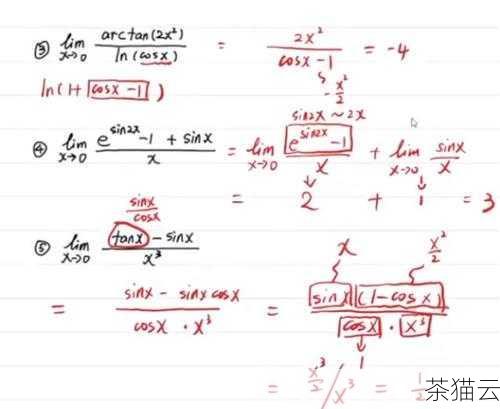 ③ lim x→0 arctan(2x²) / ln(cosx) = 2x² / cosx-1 = -4
ln(1+ cosx-1 ) -x²/2
sin2x ~ 2x
④ lim x→0 e^sin2x -1 + sinx / x = lim x→0 e^sin2x -1 / x + lim x→0 sinx / x
= 2 + 1 = 3
sinx / cosx
⑤ lim x→0 tanx - sinx / x³
x x²/2
= sinx - sinx cosx / cosx · x³ = sinx (1-cosx) / cosx · x³
1
= x³/2 / x³ = 1/2
茶猫云